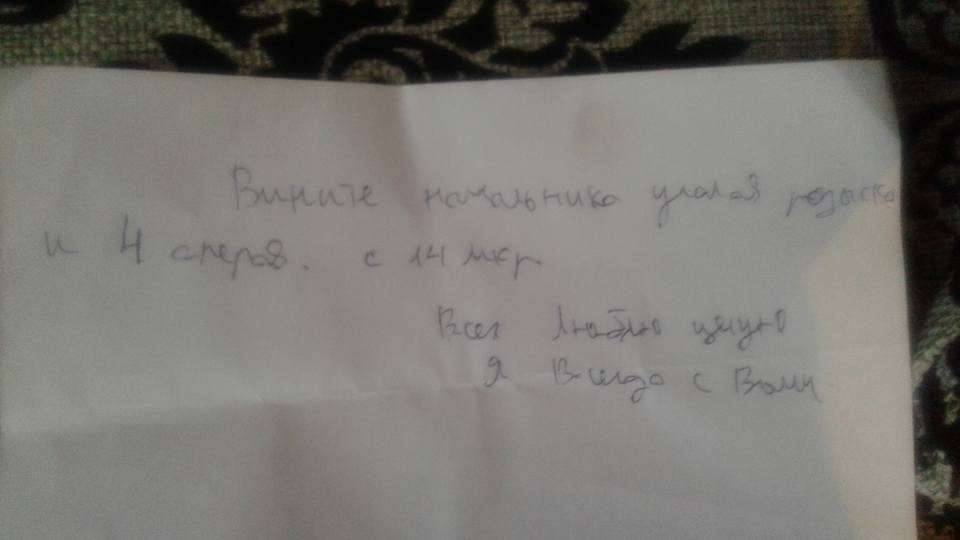 Вините начальника уголов розыска
и 4 оперов. с 14 мкр
Всех люблю цулую
Я Всегда с Вами